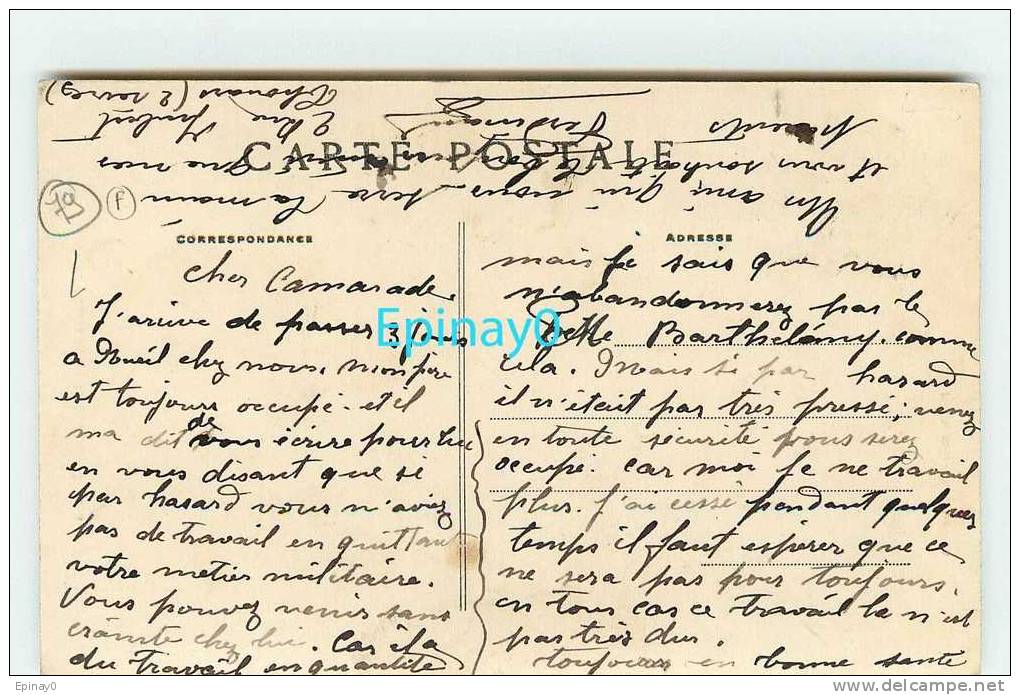 CARTE POSTALE
79
F
CORRESPONDANCE
Cher Camarade.
J'arrive de passer 3 jours
a Rueil chez nous, mon père
est toujours occupé. et il
ma dit de vous écrire pour lui
en vous disant que si
par hasard vous n'aviez
pas de travail en quittant
votre metier militaire.
Vous pouvez venir sans
crainte chez lui. Car il a
du travail en quantité
ADRESSE
mais je sais que vous
n'abandonnerez pas le
Barthélémy. comme
cela. Mais si par hasard
il n'était pas très pressé; venez
en toute sécurité vous serez
occupé. car moi je ne travail
plus. j'ai cessé pendant quelques
temps il faut espérer que ce
ne sera pas pour toujours.
en tous cas ce travail la n'est
pas très dur.
toujours en bonne santé
Un ami qui vous serre la main
et vous souhait
Thouars (2 Sevres)
Epinay0
Epinay0
www.delcampe.net